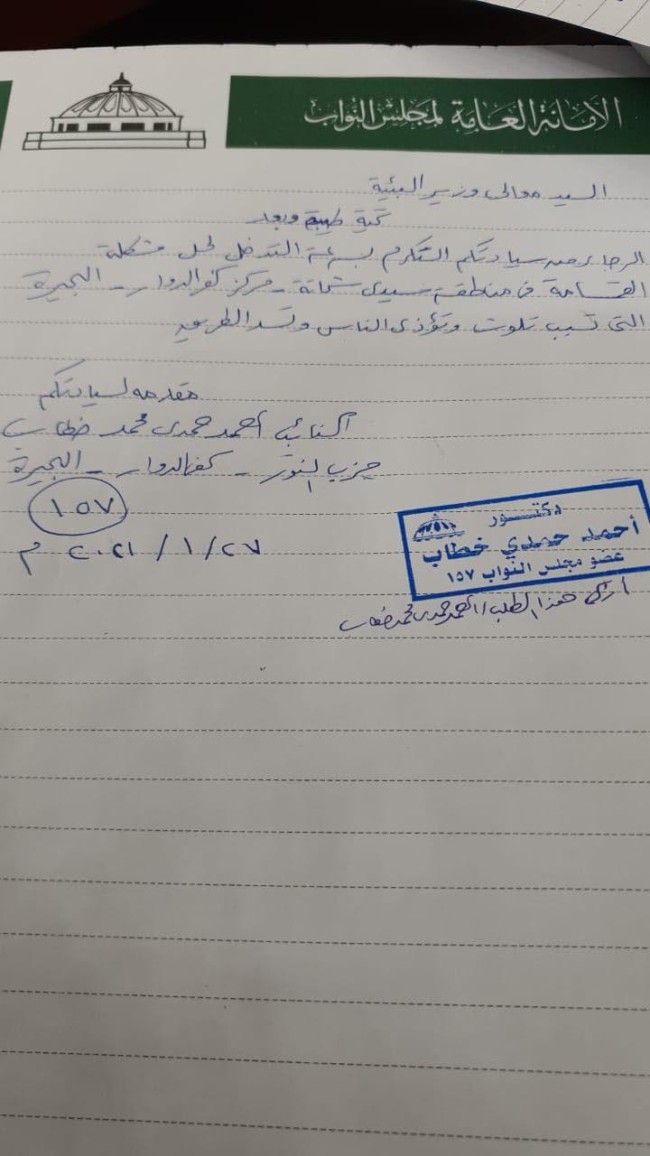 الأمانة العامة لمجلس النواب
السيد معالى وزير البيئة
تحية طيبة وبعد
الرجاء من سيادتكم التكرم بسرعة التدخل لحل مشكلة
القمامة فى منطقة سيدى شحاتة - مركز كفر الدوار - البحيرة
التى تسبب تلوث وتؤذى الناس وتسد الطريق
مقدمه لسيادتكم
النائب أحمد حمدى محمد خطاب
حزب النور - كفر الدوار - البحيرة
١٥٧
٢٧ / ١ / ٢٠٢١ م
دكتور
أحمد حمدي خطاب
عضو مجلس النواب ١٥٧
أزكى هذا الطلب / أحمد حمدى محمد خطاب